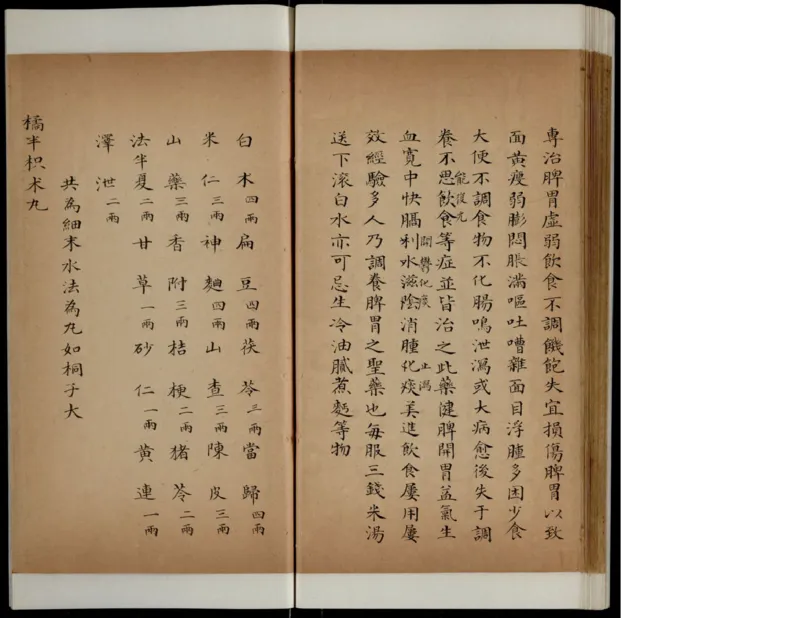 專治脾胃虛弱飲食不調饑飽失宜損傷脾胃以致
面黃瘦弱膨悶脹滿嘔吐嘈雜面目浮腫多困少食
大便不調食物不化腸鳴泄瀉或大病愈後失于調
能復元
養不思飲食等症並皆治之此藥健脾開胃益氣生
開鬱化痰 止瀉
血寬中快膈利水滋陰消腫化痰美進飲食屢用屢
效經驗多人乃調養脾胃之聖藥也每服三錢米湯
送下滾白水亦可忌生冷油膩煮麪等物
白朮四兩扁豆四兩茯苓三兩當歸四兩
米仁三兩神麯四兩山查三兩陳皮三兩
山藥三兩香附三兩桔梗二兩猪苓二兩
法半夏二兩甘草一兩砂仁一兩黃連一兩
澤泄二兩
共為細末水法為丸如桐子大
橘半枳朮丸